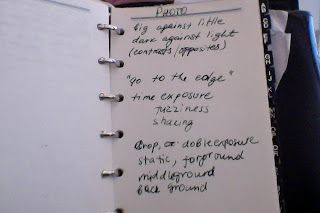 PHOTO
big against little
dark against light
(contrasts/opposites)
"go to the edge"
time exposure
fuzziness
sharing
Crop, or dobleexposure
static, forground
middleground
back ground